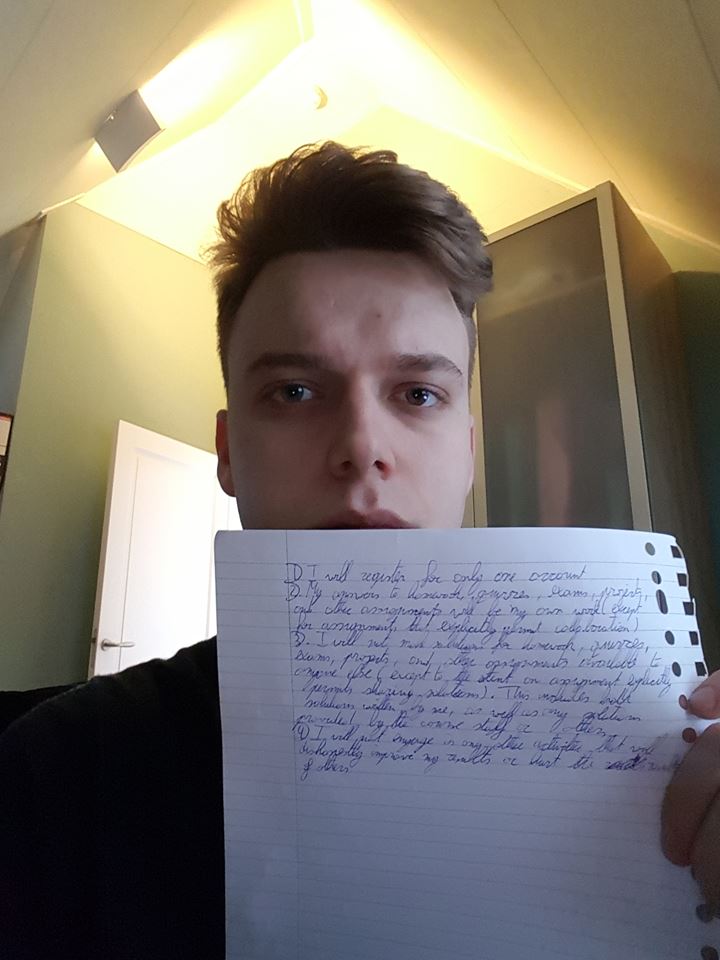 1) I will register for only one account
2. My answers to homework, quizzes, exams, projects,
and other assignments will be my own work (except
for assignments that explicitly permit collaboration)
3. I will not make solutions for homework, quizzes,
exams, projects, and other assignments available to
anyone else (except to the extent an assignment explicitly
permits sharing solutions). This includes both
solutions written by me, as well as any solutions
provided by the course staff or others
4) I will not engage in any other activities that will
dishonestly improve my results or hurt the results
of others